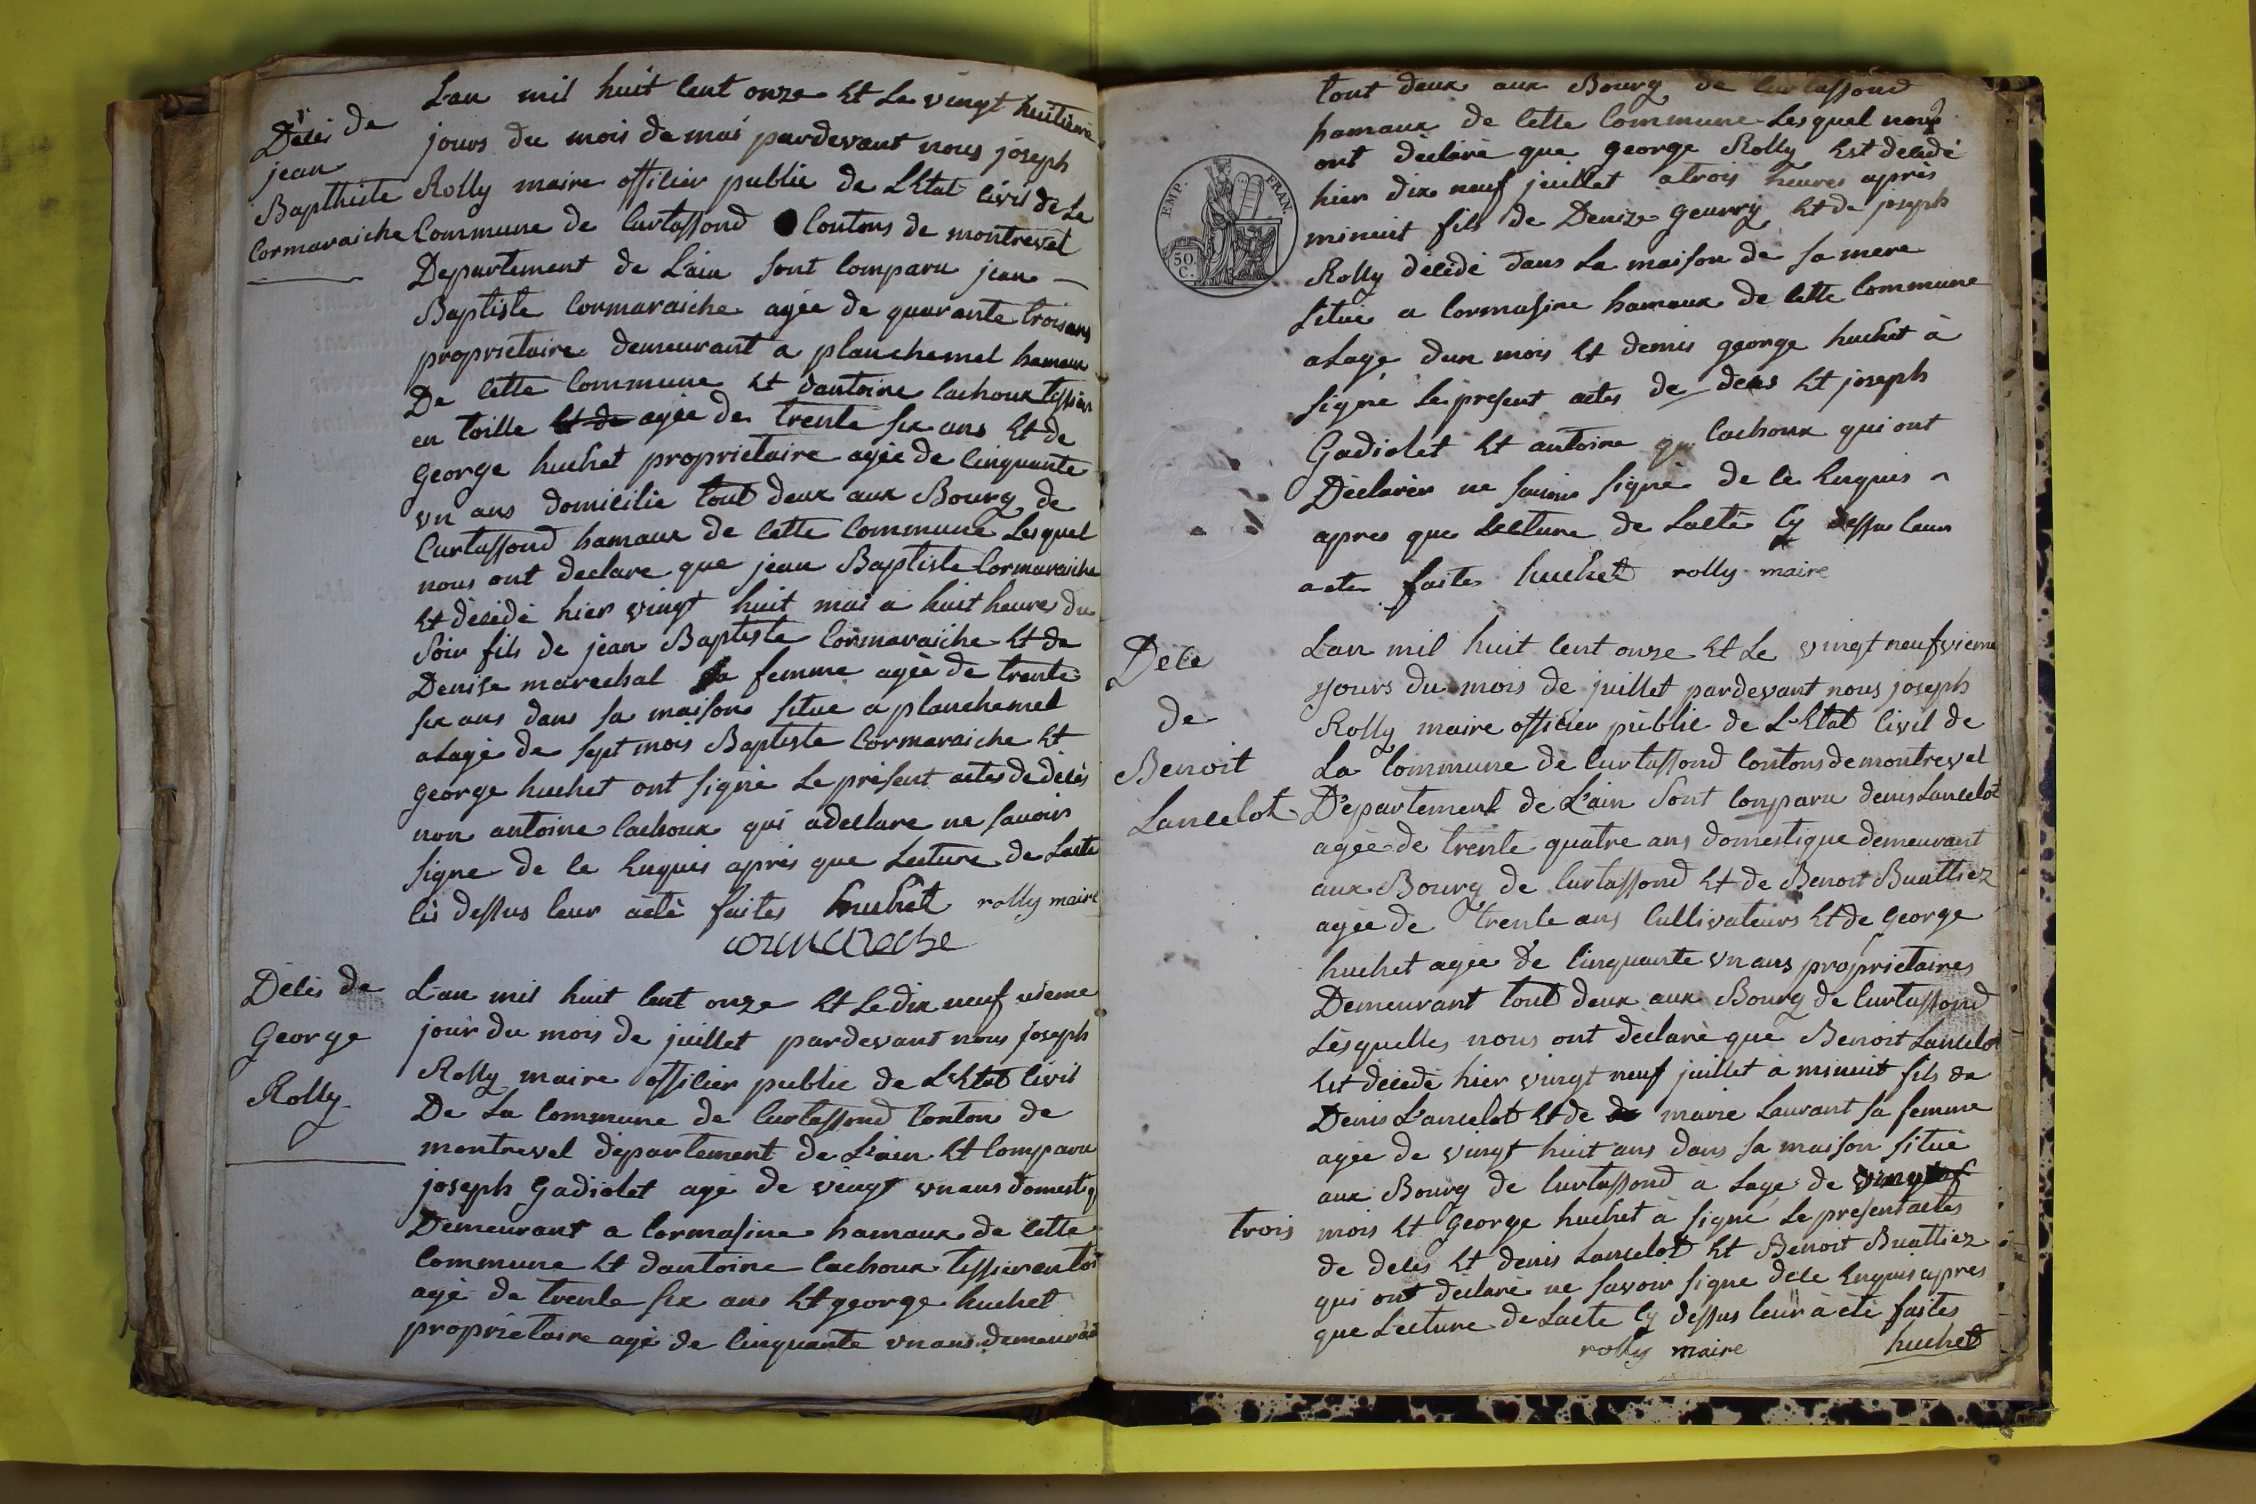 Décés de
jean
Bapthiste
Cormaraiche
L'an mil huit cent onze Et Le vingt huitieme
jours du mois de mai pardevant nous joseph
Rolly maire officier public de L'Etat civil de La
Commune de Curtassond Contons de montrevel
Departement de L'ain sont comparu jean
Baptiste Cormaraiche agée de quarante trois ans
proprietaire demeurant a planchemel hameau
De cette Commune Et dantoine Cachoux tissier
en toille Et de agée de trente six ans Et de
George huchet proprietaire agée de Cinquante
vn ans domicilie tout deux aux Bourg de
Curtassond hamaux de cette Commune Lesquel
nous ont declare que jean Baptiste Cormaraiche
Et décédé hier vingt huit mai a huit heures du
Soir fils de jean Baptiste Cormaraiche Et de
Denise marechal sa femme agée de trente
six ans dans sa maison situe a planchemel
a Lage de sept mois Baptiste Cormaraiche Et
George huchet ont signé Le présent actes de décés
non antoine Cachoux qui a declare ne savoir
signe de ce Enquis aprés que Lecture de Lacte
cis dessus leur a été faites huchet rolly maire
cormarache
Décés de
George
Rolly
L'an mil huit cent onze Et Le dix neuf vieme
jour du mois de juillet pardevant nous joseph
Rolly maire officier public de L'Etat Civil
De La Commune de Curtassond Contons de
montrevel département de L'ain Et Comparu
joseph Gadiolet agé de vingt vn ans domestiq
Demeurant a Cormasine hamaux de cette
Commune Et dantoine Cachoux tissier en toi
agé de trente six ans Et george huchet
proprietaire agé de Cinquante vn ans demeurant
tout deux aux Bourg de Curtassond
hamaux de cette Commune Lesquel nous
ont déclaré que george Rolly Est décédé
hier dix neuf juillet a trois heures aprés
minuit fils de Denize geurry Et de joseph
Rolly décédé dans La maison de sa mere
situé a Cormasine hamaux de cette Commune
a Lage dun mois Et demis george huchet à
signé Le present actes de deces Et joseph
Gadiolet Et antoine Cachoux qui ont
Déclarér ne savoir signé de ce Enquis
apres que Lecture de Lacté Cy dessu leur
a ete faites huchet rolly maire
EMP. FRAN.
50.
C.
Décé
de
Benoit
Lancelot
L'an mil huit cent onze Et Le vingt neuf vieme
jours du mois de juillet pardevant nous joseph
Rolly maire officier public de L'Etat Civil de
La Commune de Curtassond Contons de montrevel
Département de L'ain Sont Comparu denis Lancelot
agée de trente quatre ans domestique demeurant
aux Bourg de Curtassond Et de Benoit Buattiez
agée de trente ans Cullivateurs Et de George
huchet agée de Cinquante vn ans proprietaires
Demeurant tout deux aux Bourg de Curtassond
Lésquelles nous ont déclaré que Benoit Lancelot
Est décédé hier vingt neuf juillet à minuit fils de
Denis L'ancelot Et de marie Laurant sa femme
agée de vingt huit ans dans sa maison situé
aux Bourg de Curtassond à Lage de
trois mois Et George huchet à signé Le present actes
de decés Et denis Lancelot Et Benoit Buattiez
qui ont déclaré ne savoir signe de ce Enquis apres
que Lecture de Lacte Cy dessus leur à été faites
rolly maire huchet